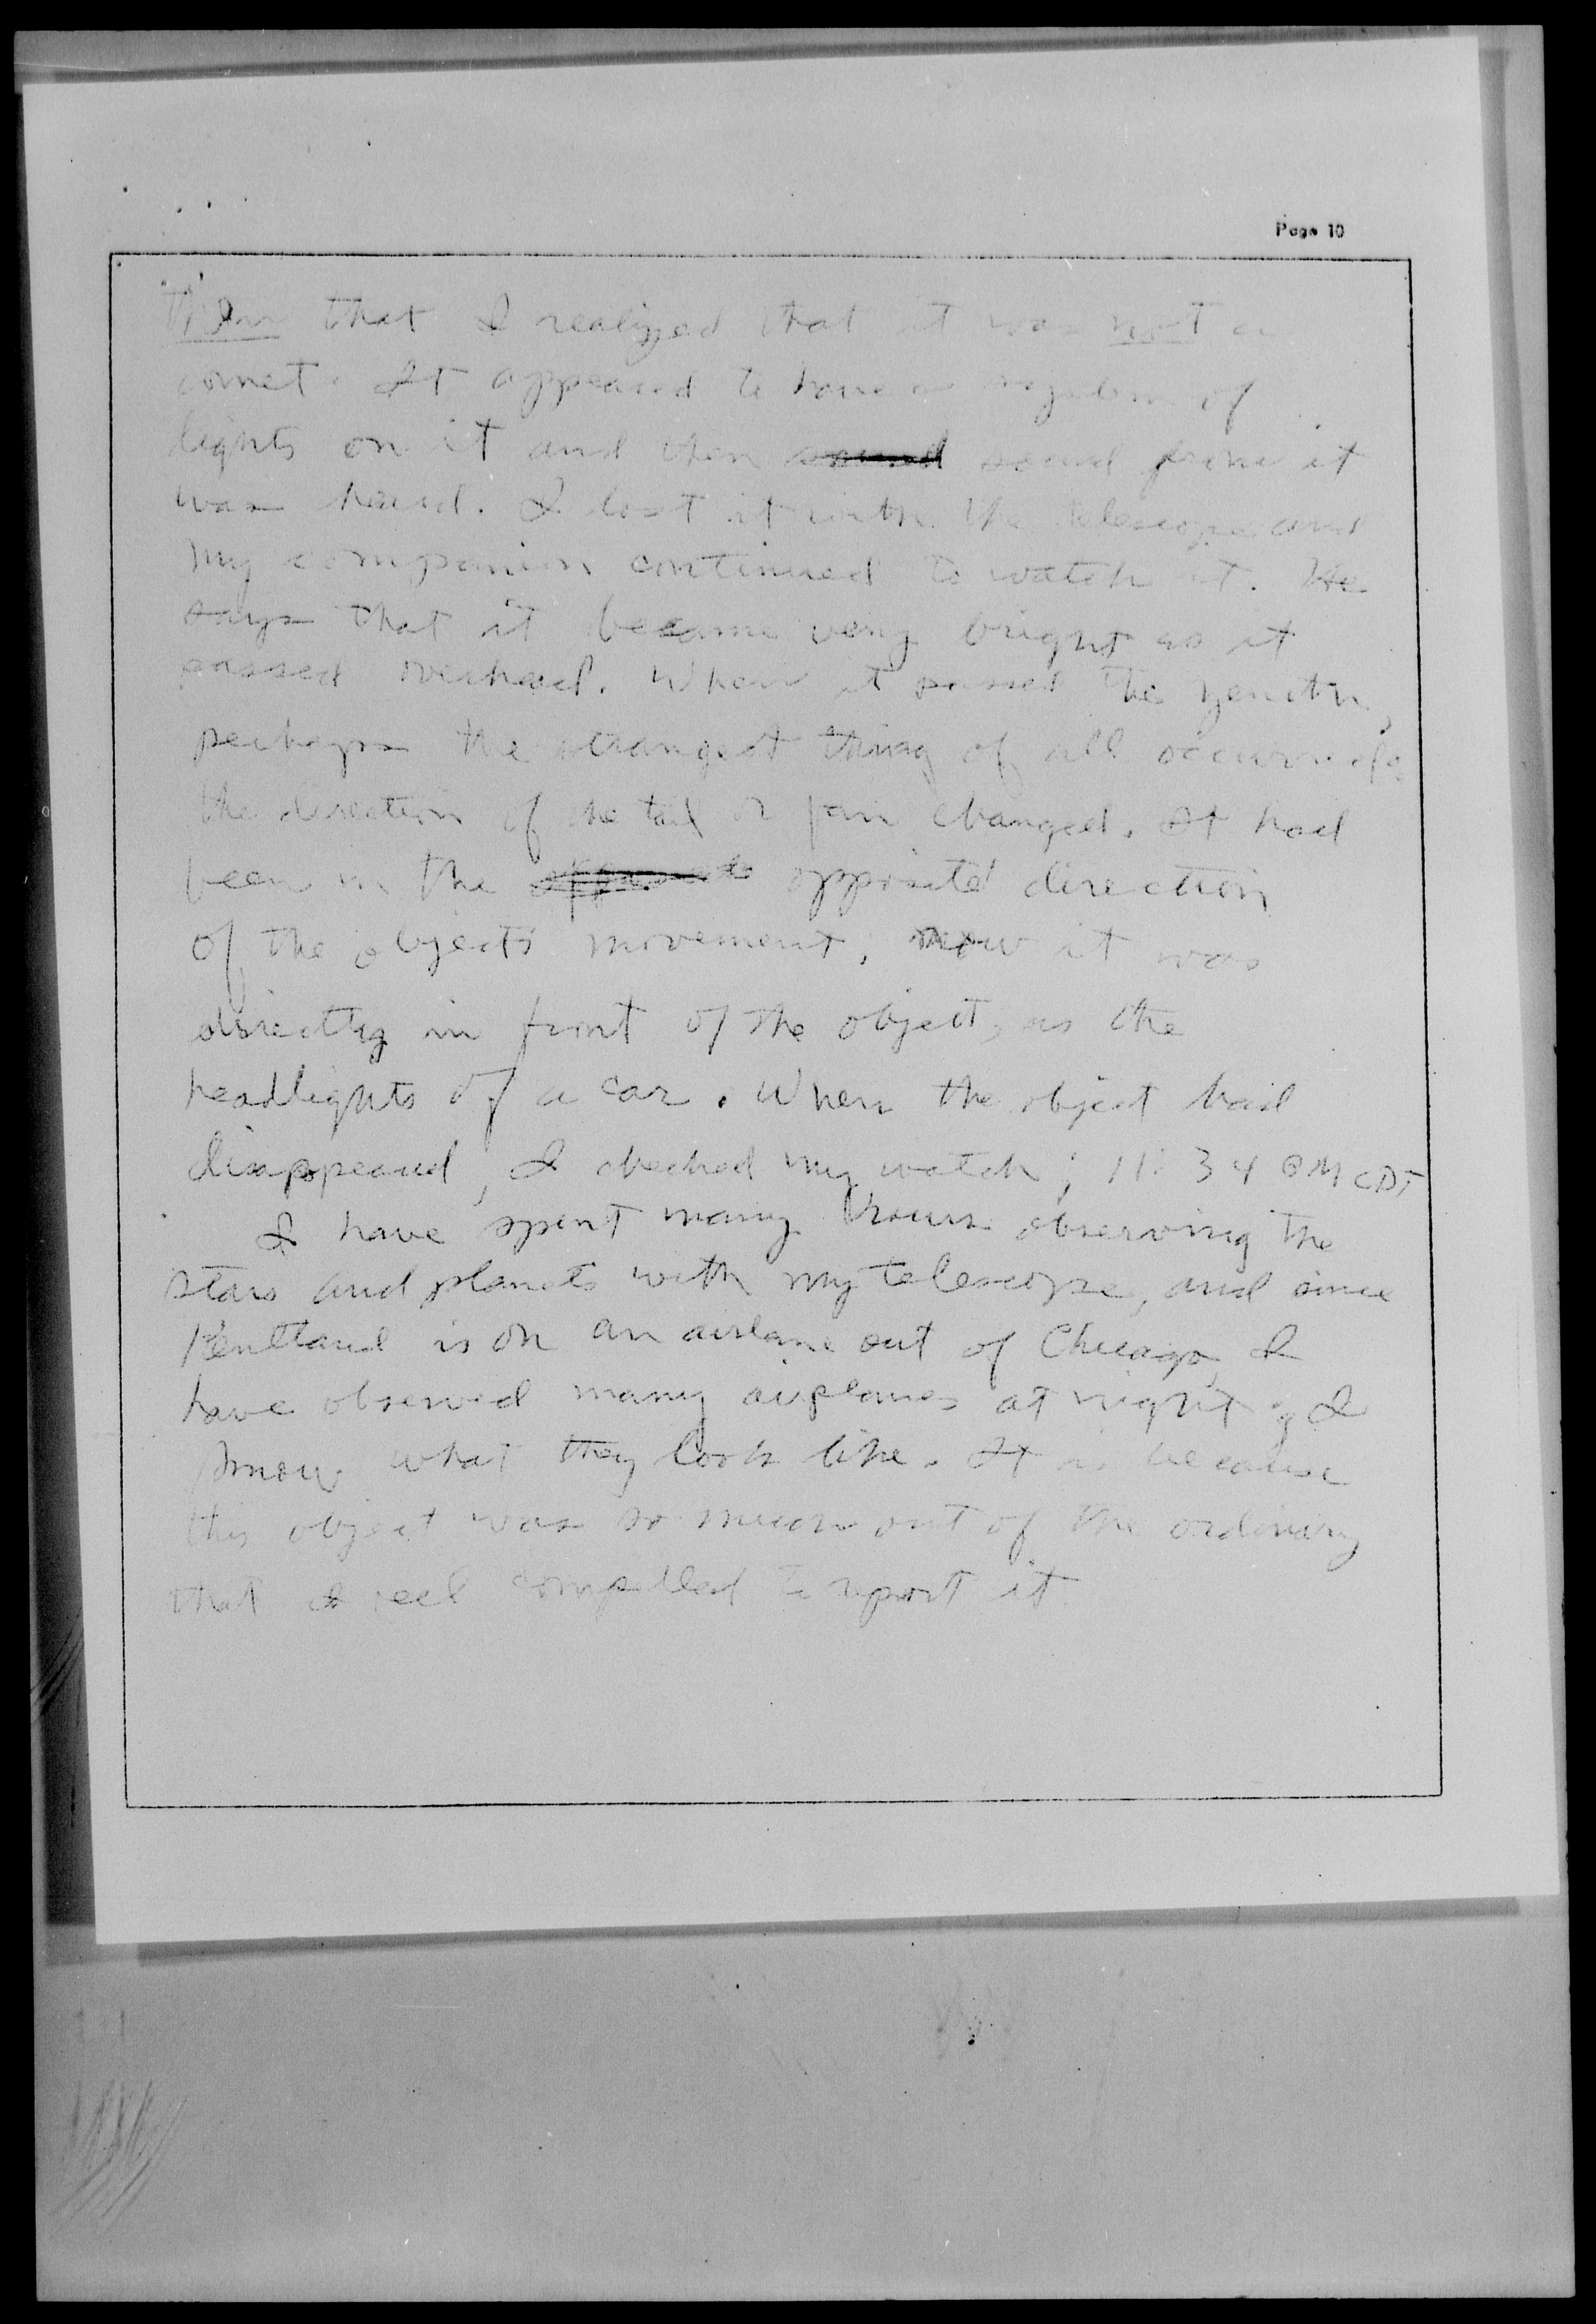 Page 10
then that I realized that it was not a
comet. It appeared to have a system of
lights on it and then sound sound from it
was heard. I lost it with the telescope and
my companion continued to watch it. He
says that it became very bright as it
passed overhead. When it passed the zenith,
perhaps the strangest thing of all occurred:
the direction of the tail or fan changed. It had
been in the opposite direction
of the objects movement, now it was
directly in front of the object, as the
headlights of a car. When the object had
disappeared, I checked my watch; 11:34 PM CDT
I have spent many hours observing the
stars and planets with my telescope, and since
Kentland is on an airlane out of Chicago, I
have observed many airplanes at night; I
know what they look like. It is because
this object was so much out of the ordinary
that I feel compelled to report it.